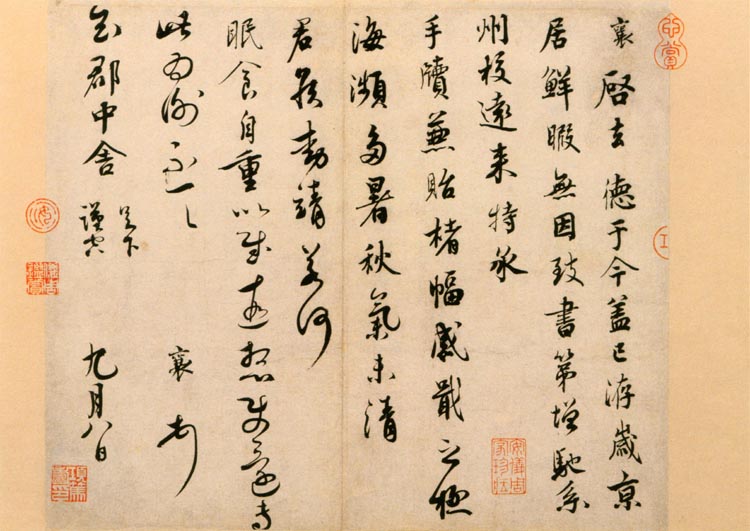 襄啓去德于今蓋已洊歲京
居鮮暇無因致書第增馳系
州校遠来特承
手牘兼貽楮幅感戢之極
海瀕多暑秋氣未清
君侯動靖若何
眠食自重以
此為謝不一一
襄頓首
郡中舍足下
謹空
九月八日